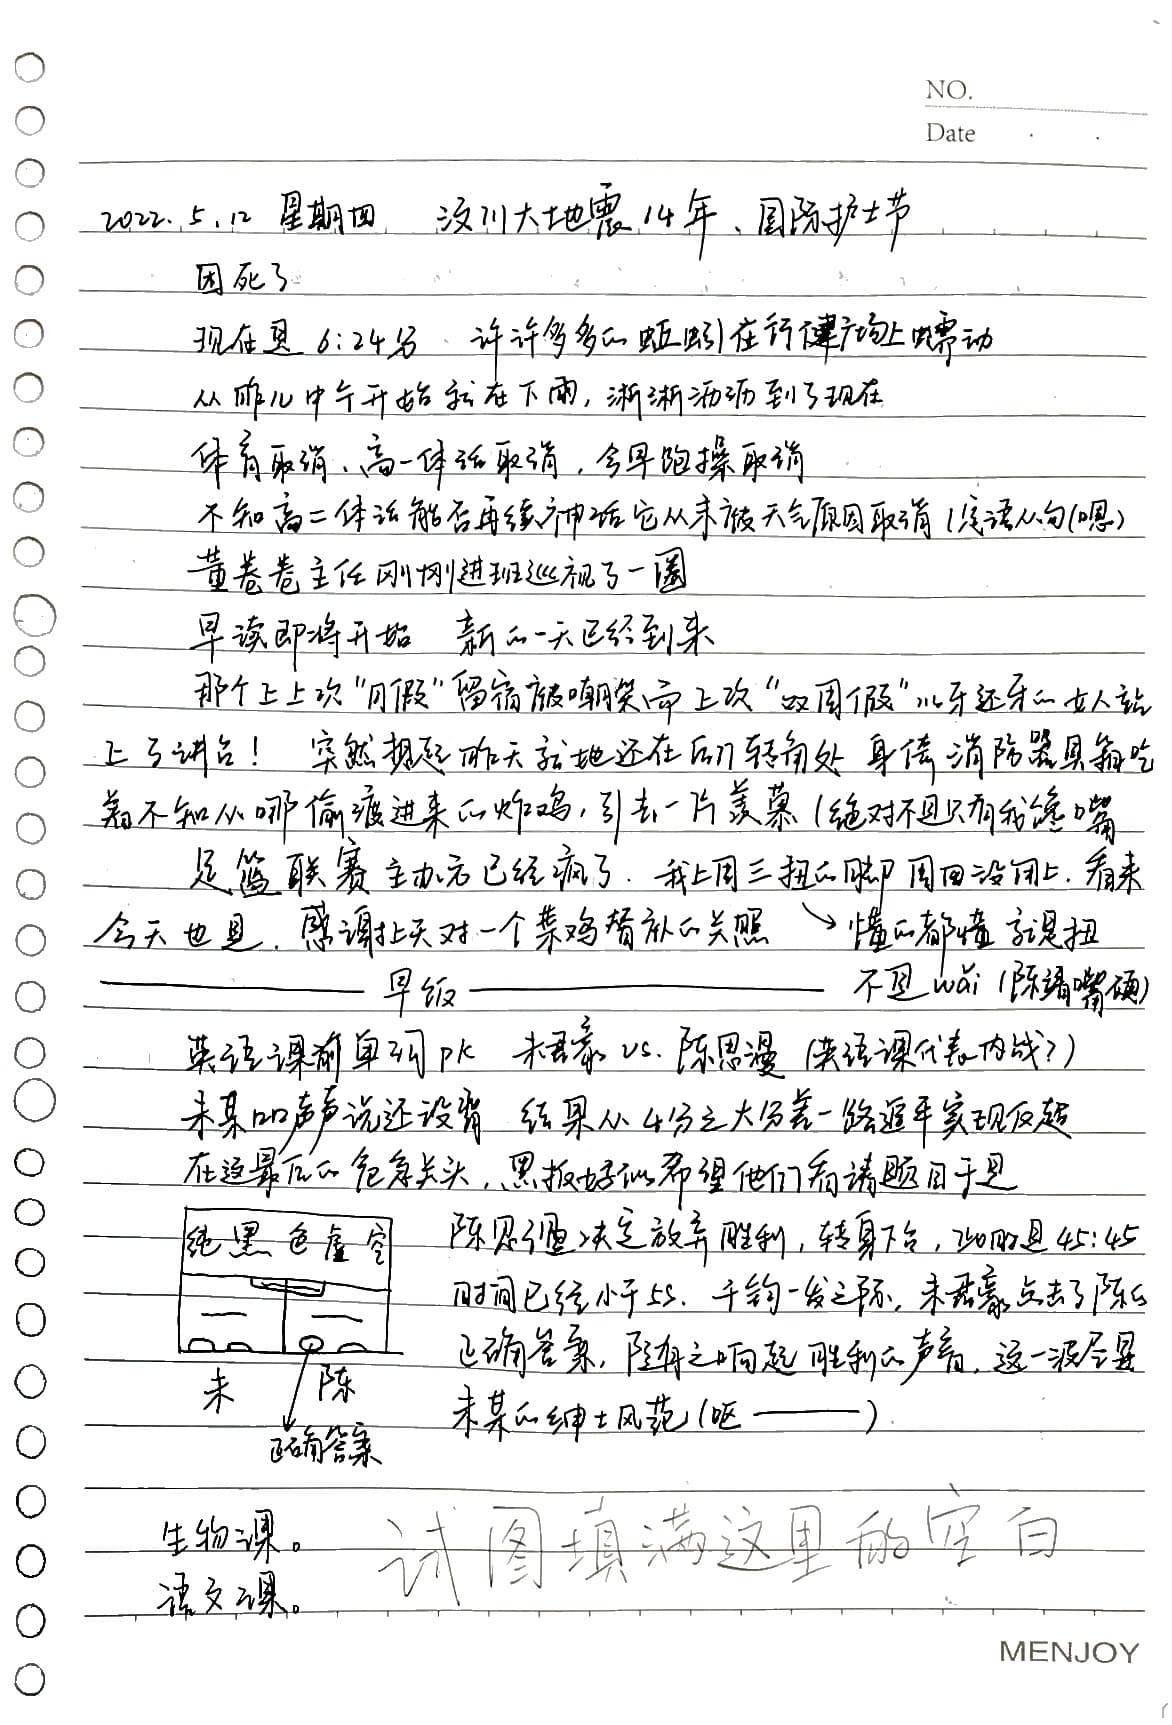 NO.
Date
2022.5.12 星期四 汶川大地震14年、国际护士节
困死了
现在是6:24分 许许多多的蚯蚓在行健广场上蠕动
从昨儿中午开始就在下雨,淅淅沥沥到了现在
体育取消、高一体活取消,今早跑操取消
不知高二体活能否再续神话它从未被天气原因取消(定语从句(嗯)
董卷卷主任刚刚进班巡视了一圈
早读即将开始 新的一天已经到来
那个上上次“月假”留宿被嘲笑而上次“双周假”以牙还牙的女人站
上了讲台! 突然想起昨天就地还在后门转角处 身倚消防器具箱吃
着不知从哪偷渡进来的炸鸡,引去一片羡慕(绝对不是只有我馋嘴
足篮联赛主办方已经疯了.我上周三扭的脚 周四没闭上.看来
今天也是.感谢上天对一个菜鸡替补的关照 ↘懂的都懂 就是扭
早饭 不是wǎi(陈靖嘴硬)
英语课前单词pk 未君豪 vs. 陈思漫(英语课代表内战?)
未某口口声声说还没背 结果从4分之大分差一路追平实现反超
在这最后的危急关头,黑板好似希望他们看清题目于是
纯黑色虚空 陈思漫决定放弃胜利,转身下台,此时是45:45
时间已经小于5s.千钧一发之际,未君豪点击了陈的
正确答案,随有之响起胜利的声音,这一波尽显
未 陈 未某的绅士风范(呕——)
正确答案
生物课。 试图填满这里的空白
语文课。
MENJOY